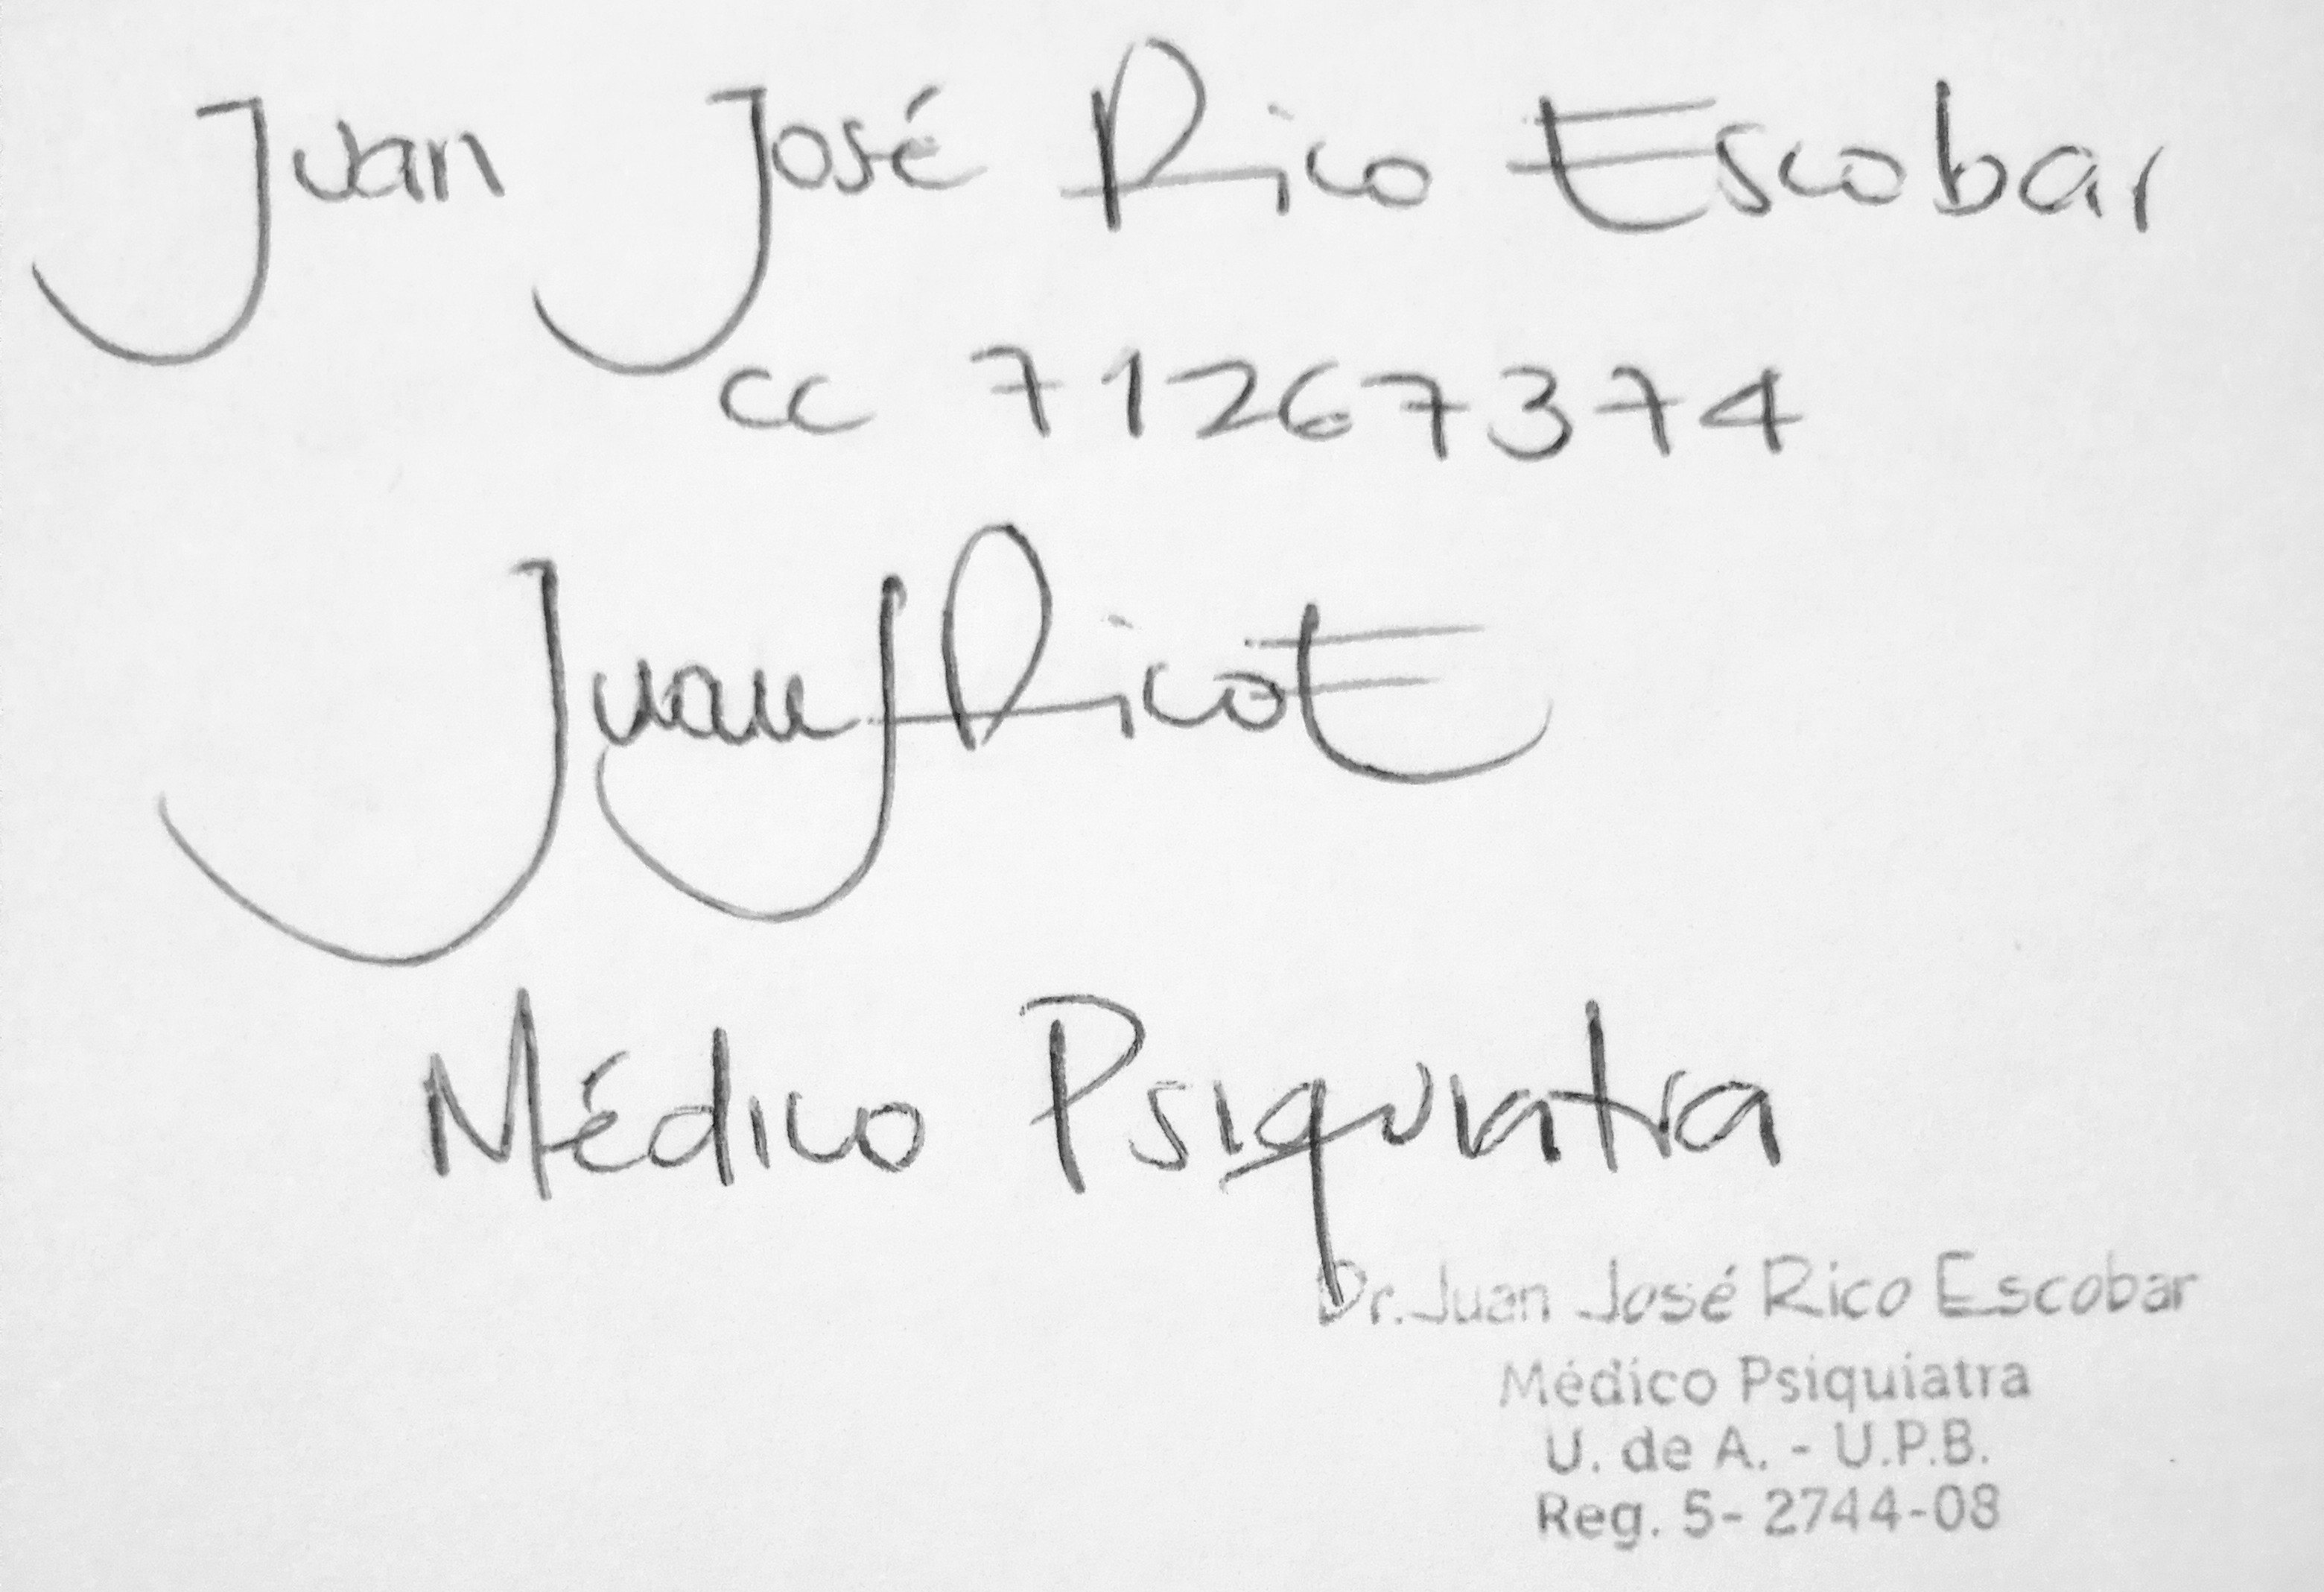 Juan José Rico Escobar
cc 71267374
Juan J Rico E
Médico Psiquiatra
Dr. Juan José Rico Escobar
Médico Psiquiatra
U. de A. - U.P.B.
Reg. 5- 2744-08